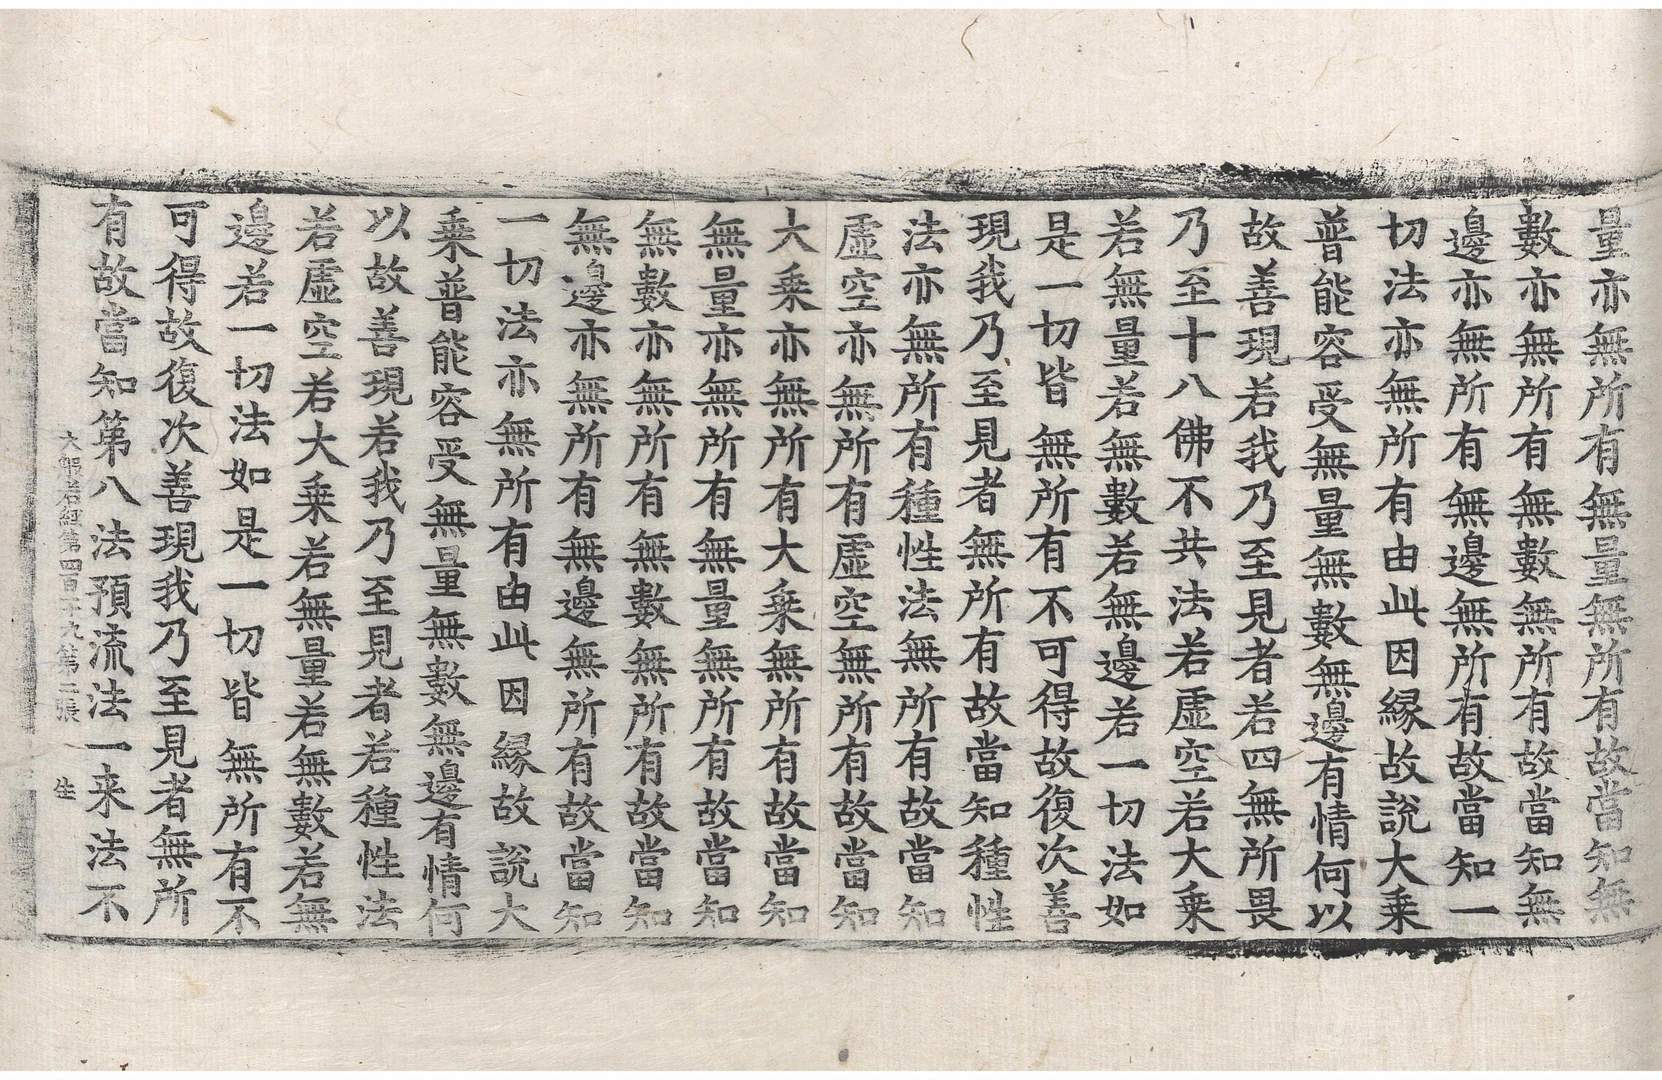 量亦無所有無量無所有故當知無
數亦無所有無數無所有故當知無
邊亦無所有無邊無所有故當知一
切法亦無所有由此因縁故說大乗
普能容受無量無數無邊有情何以
故善現若我乃至見者若四無所畏
乃至十八佛不共法若虛空若大乗
若無量若無數若無邊若一切法如
是一切皆無所有不可得故復次善
現我乃至見者無所有故當知種性
法亦無所有種性法無所有故當知
虛空亦無所有虛空無所有故當知
大乗亦無所有大乗無所有故當知
無量亦無所有無量無所有故當知
無數亦無所有無數無所有故當知
無邊亦無所有無邊無所有故當知
一切法亦無所有由此因縁故說大
乗普能容受無量無數無邊有情何
以故善現若我乃至見者若種性法
若虛空若大乗若無量若無數若無
邊若一切法如是一切皆無所有不
可得故復次善現我乃至見者無所
有故當知第八法預流法一来法不
大般若經第四百十九第二張 生